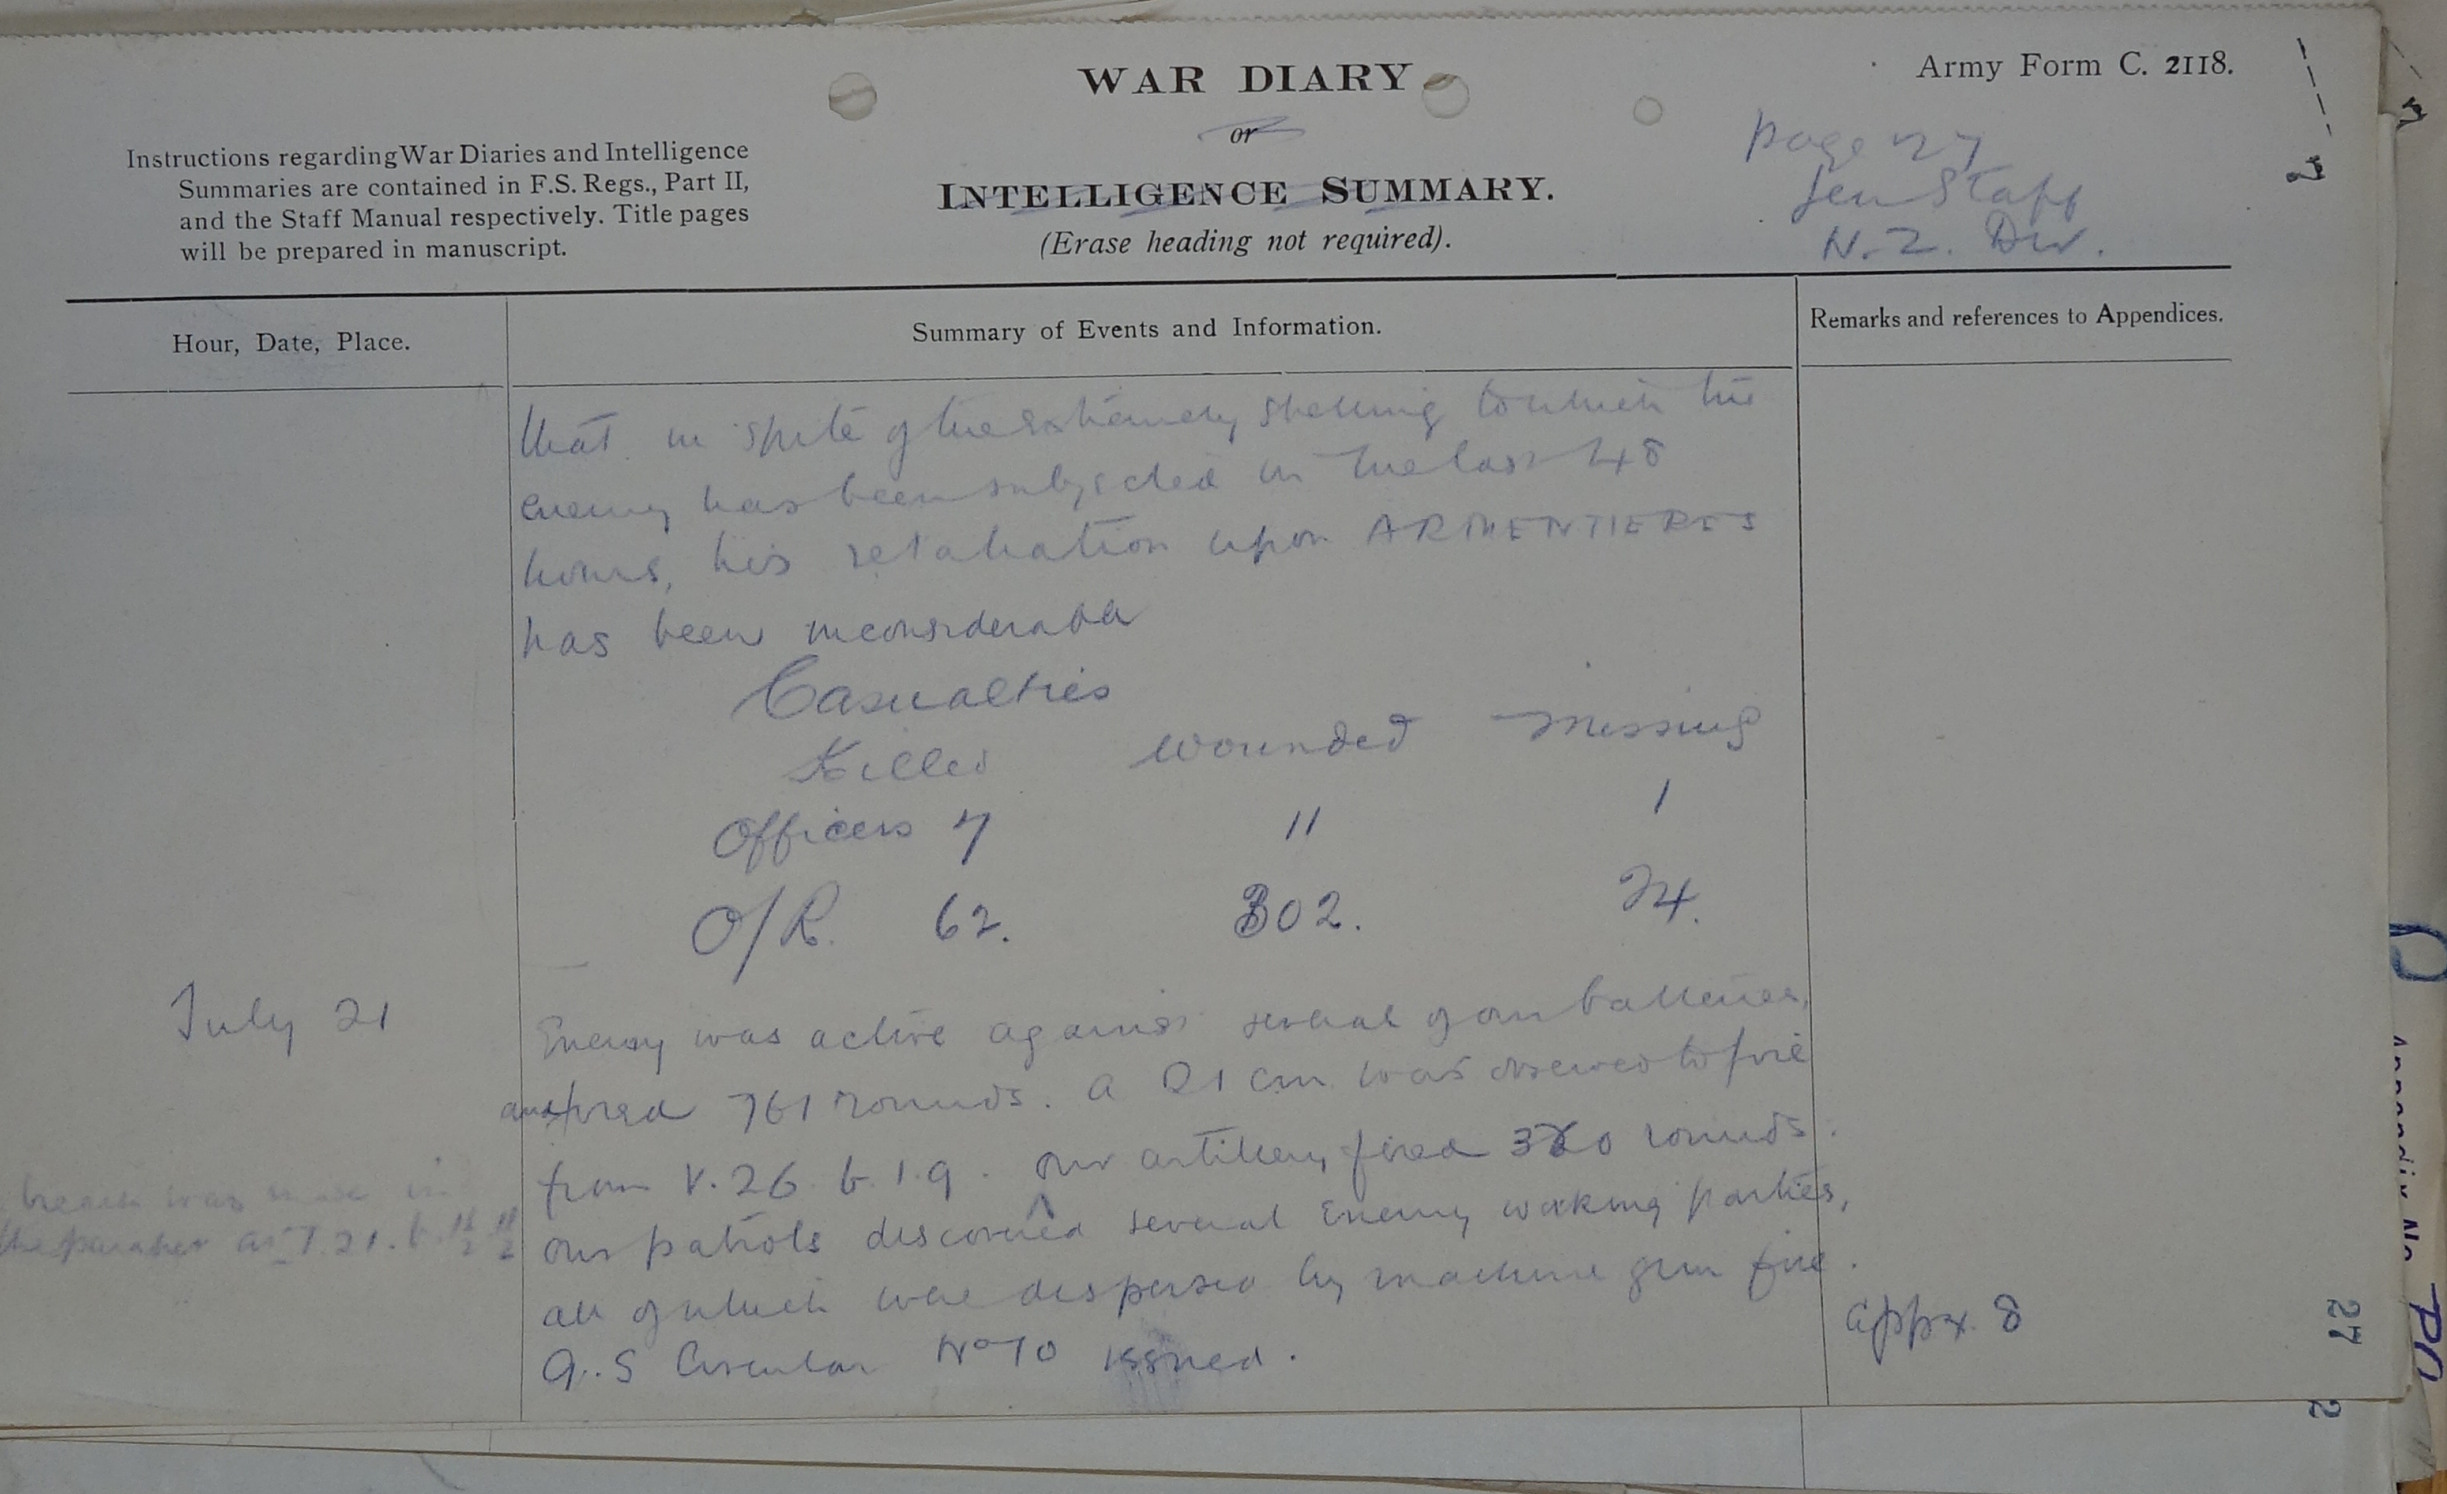 WAR DIARY
or
INTELLIGENCE SUMMARY.
(Erase heading not required).
Army Form C. 2118.
Instructions regarding War Diaries and Intelligence
Summaries are contained in F.S. Regs., Part II,
and the Staff Manual respectively. Title pages
will be prepared in manuscript.
page 27
Gen Staff
N.Z. Div.
Hour, Date, Place.
Summary of Events and Information.
Remarks and references to Appendices.
that in spite of the shelling to which the
enemy has been subjected in the last 48
hours, his retaliation upon ARMENTIERES
has been inconsiderable
Casualties
Killed wounded missing
Officers 7 11 1
O/R. 62. 302. 24.
July 21
Enemy was active against several of our batteries,
and fired 761 rounds. A 21 cm was observed to fire
from V.26.b.1.9. Our artillery fired rounds.
breach was made in
the parapet at I.21.b.
Our patrols discovered several Enemy working parties,
all of which were dispersed by machine gun fire.
G.S Circular No 10 issued.
Appx. 8
27